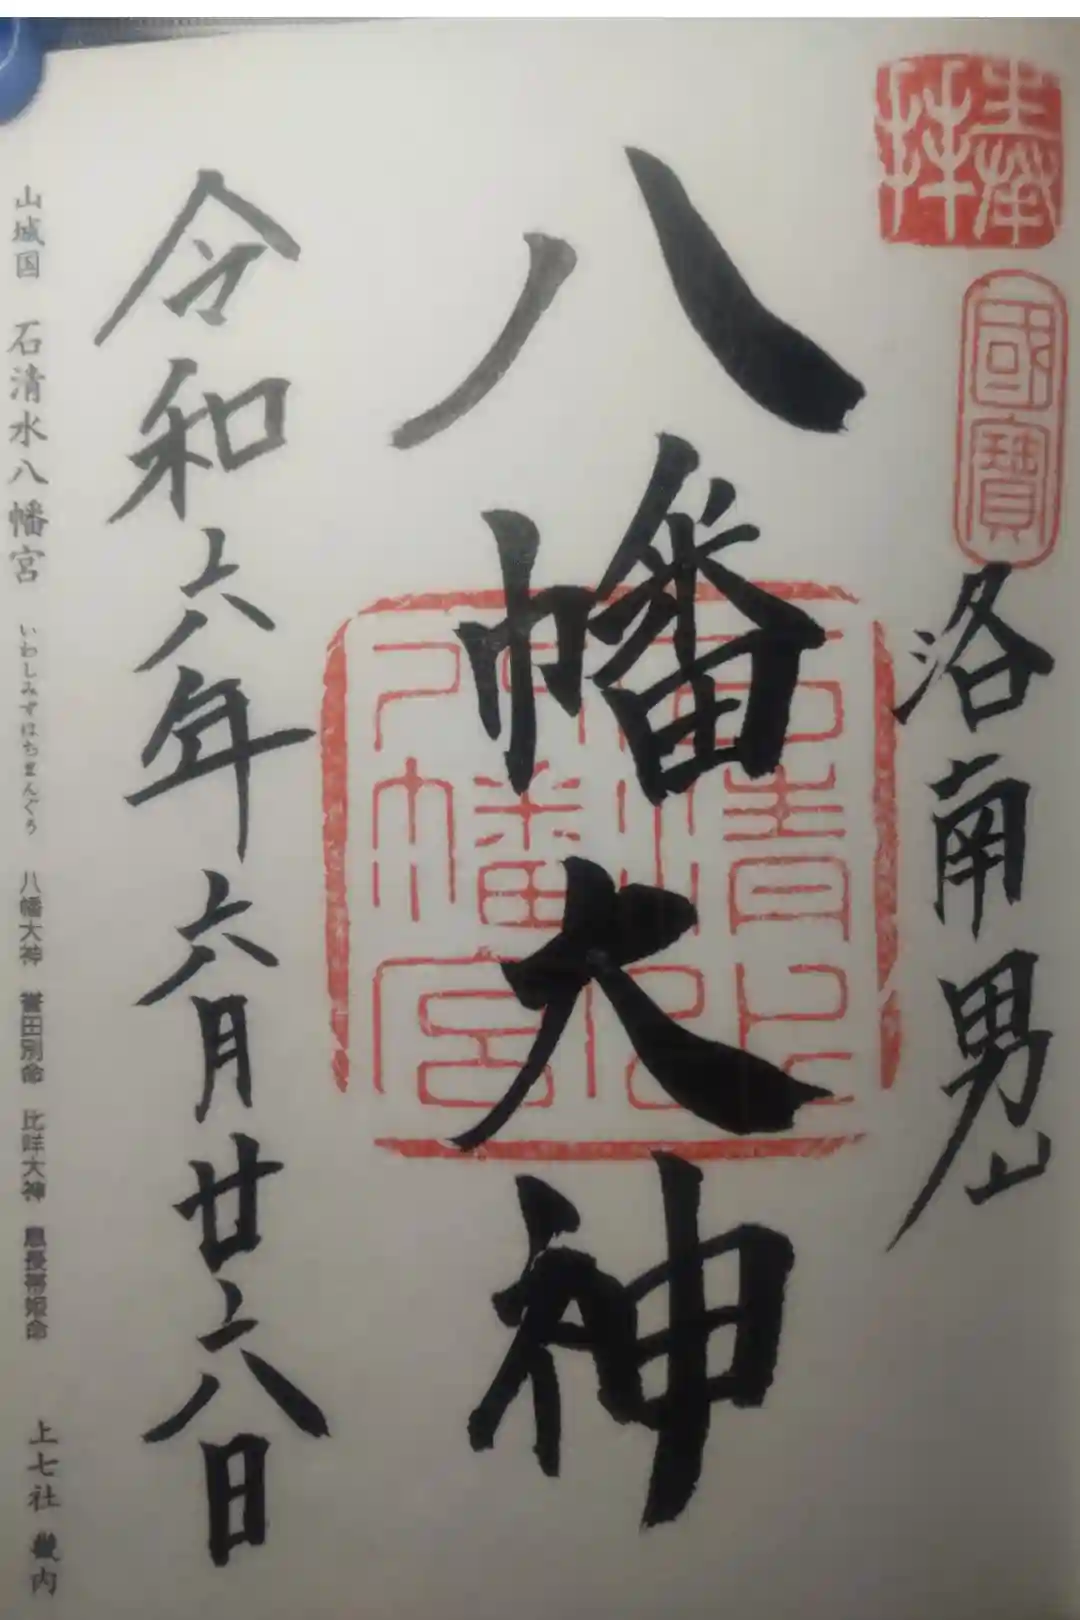 奉拝
國寶
洛南男山
八幡大神
石清水八幡宮
令和六年六月廿六日
山城国 石清水八幡宮 いわしみずはちまんぐう 八幡大神 誉田別命 比咩大神 息長帯姫命 上七社 畿内